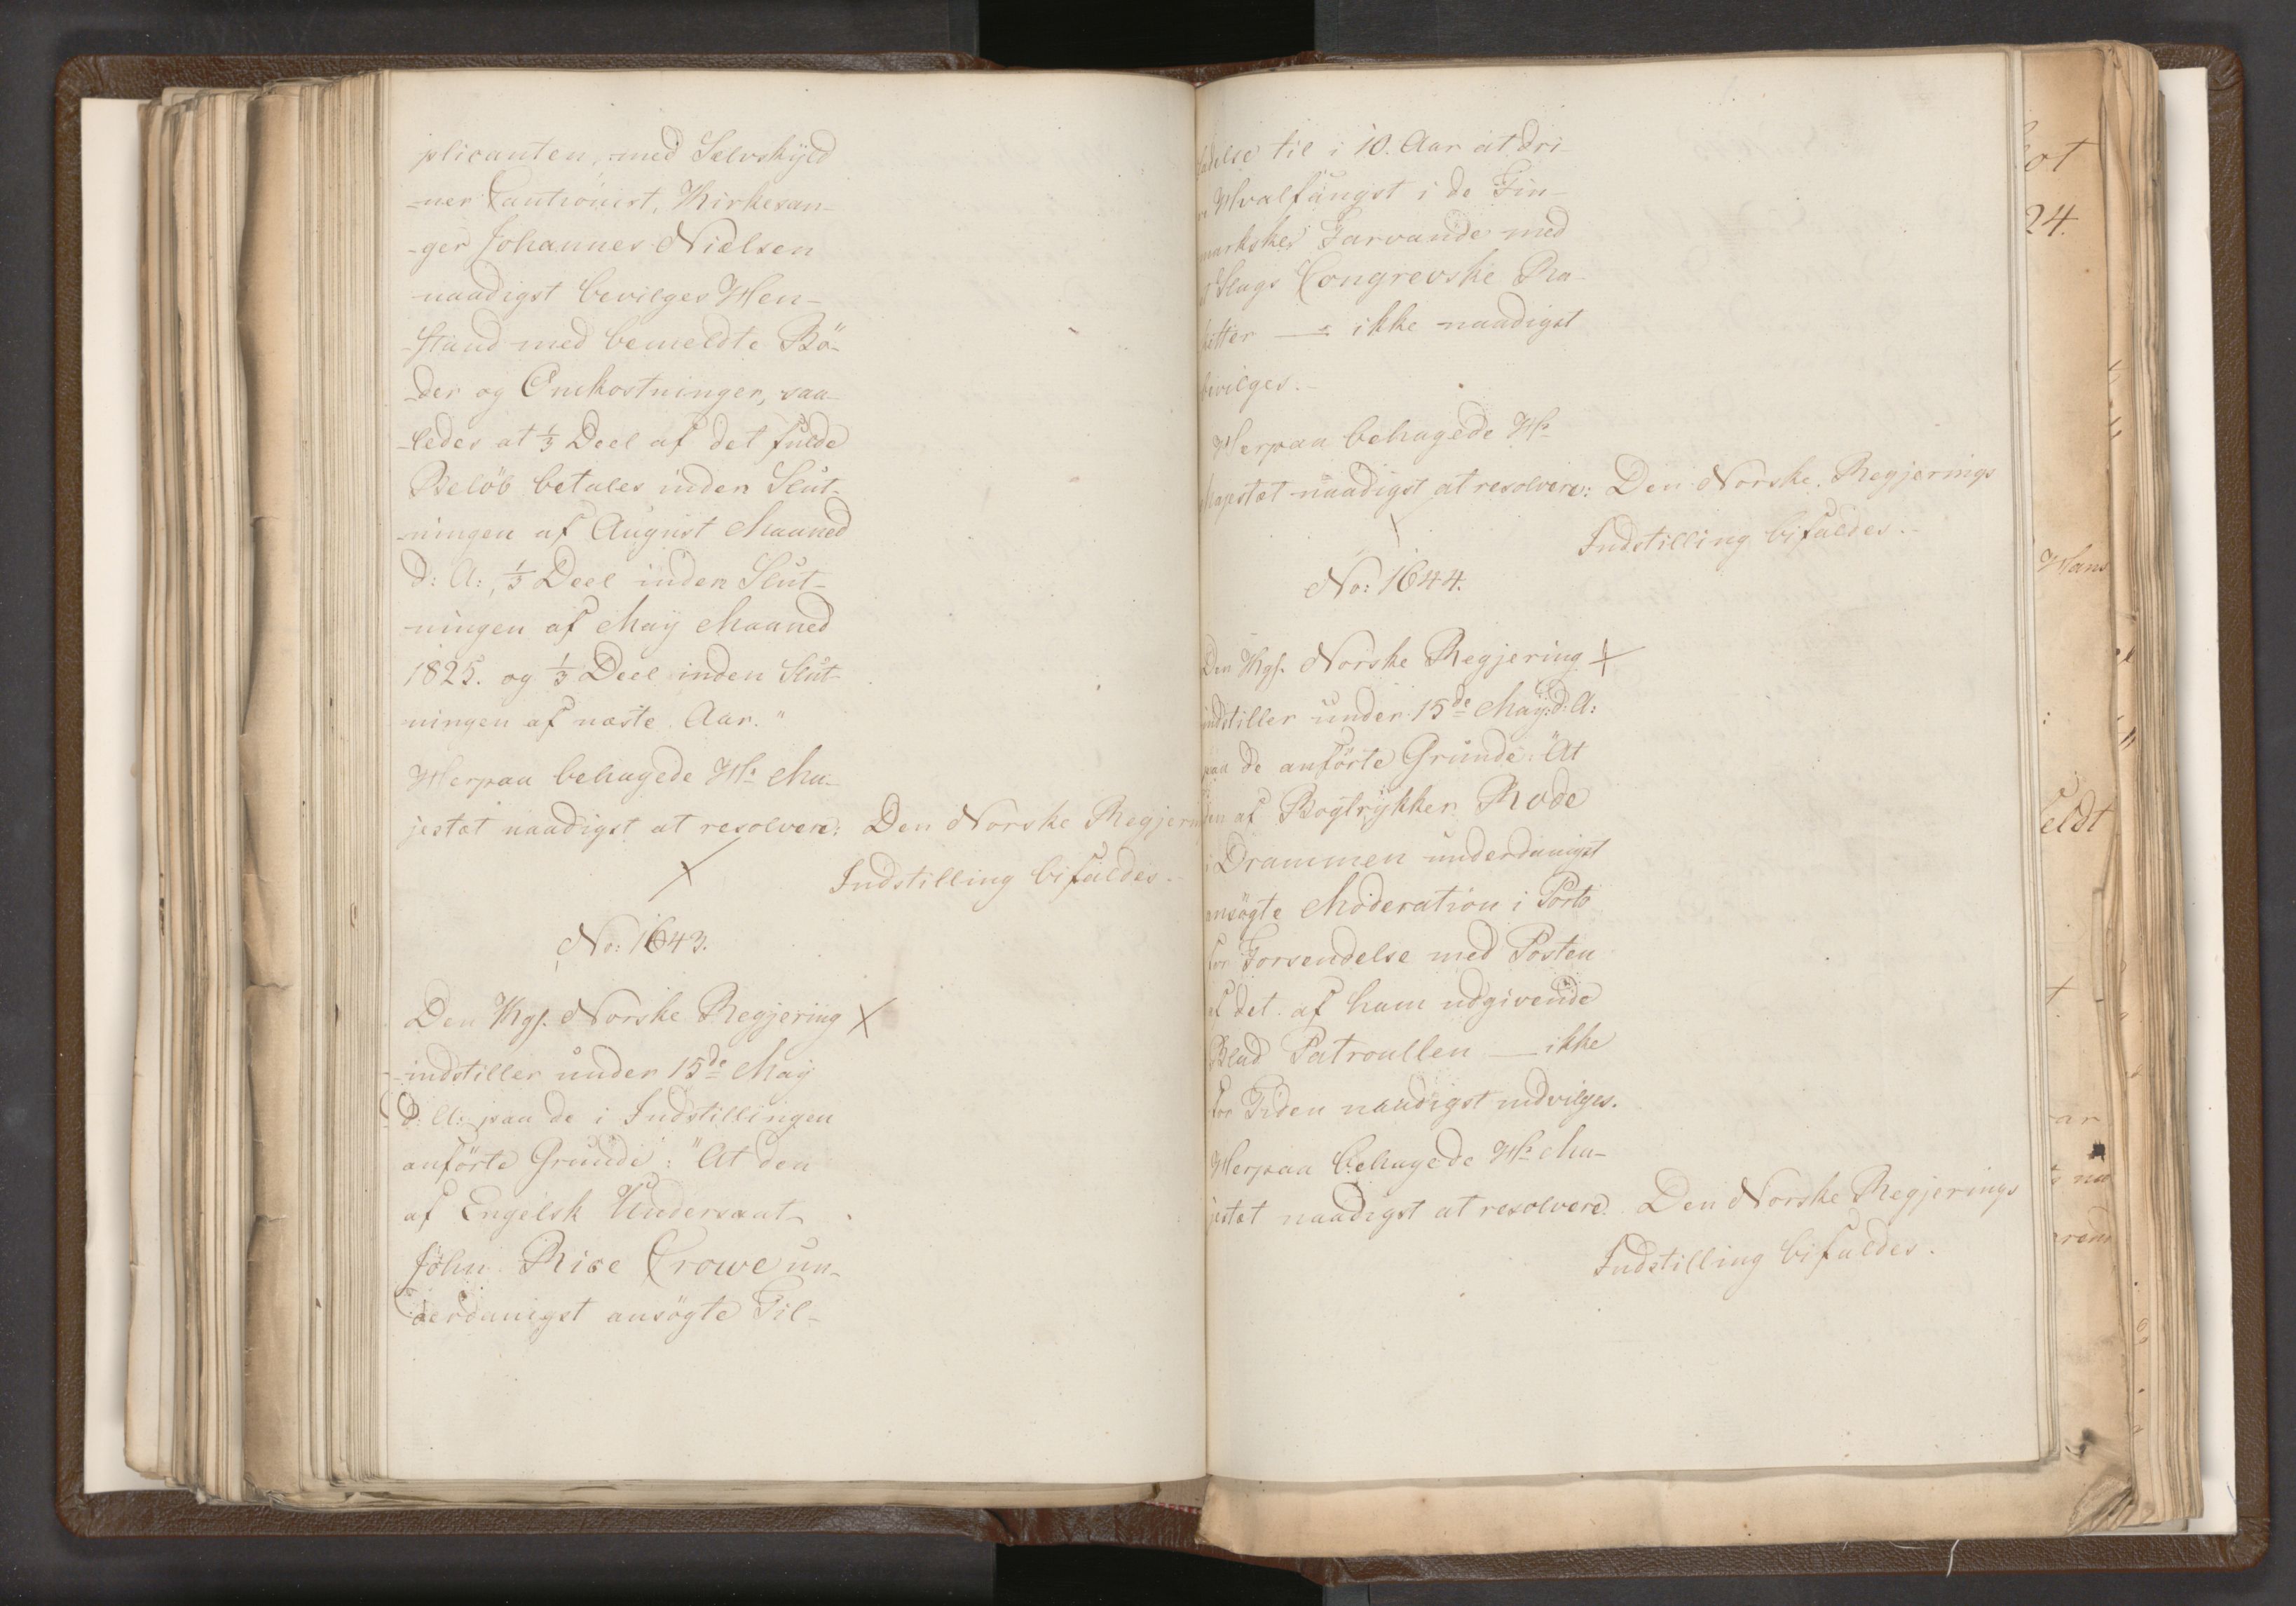 plicanten, med Selvskyld
-ner Cautionist, Kirkesan-
-ger Johannes Nielsen
naadigst bevilges Hen-
-stand med bemeldte Bö-
-der og Omkostninger, saa-
-ledes at 1/3 Deel af det fulde
Belöb betales inden Slut-
-ningen af August Maaned
d: A:, 1/3 Deel inden Slut-
-ningen af May Maaned
1825. og 1/3 Deel inden Slut-
ningen af næste Aar."
Herpaa behagede Hs Ma-
jestæt naadigst at resolvere: Den Norske Regjerings
Indstilling bifaldes.
No: 1643.
Den Kgl. Norske Regjering
indstiller under 15de May
d: A: paa de i Indstillingen
anförte Grunde: "At den
af Engelsk Undersaat
John Rice Crowe un-
derdanigst ansögte Til-
ladelse til i 10. Aar at dri-
ve Hvalfangst i de Fin-
markske Farvande med
et Slags Congrevske Ra-
ketter — ikke naadigst
bevilges.-
Herpaa behagede Hs
Majestæt naadigst at resolvere: Den Norske Regjerings
Indstilling bifaldes.-
No: 1644.
Den Kgl. Norske Regjering
indstiller under 15de May d: A:
paa de anförte Grunde: "At
den af Bogtrykker Rode
i Drammen underdanigst
ansögte Moderation i Porto
for Forsendelse med Posten
af det af ham udgivende
Blad Patroullen — ikke
for Tiden naadigst indvilges.
Herpaa behagede Hs Ma-
jestæt naadigst at resolvere. Den Norske Regjerings
Indstilling bifaldes.
24.
Hans